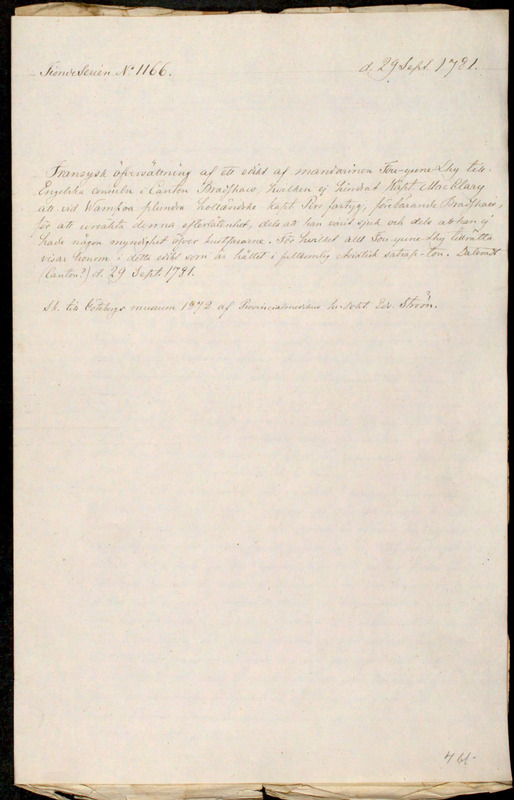 Tionde Serien No 1166.
d. 29 Sept. 1781.
Fransysk öfversättning af ett edikt af mandarinen Fou-yune Lhy till
Engelska consuln i Canton Bradshaw, hvilken ej hindrat Kapt. MacClary
att vid Wampoa plundra holländske kapt fartyg, förebärande Bradshaw,
för att urskulda denna efterlåtenhet, dels att han varit sjuk och dels att han ej
hade någon myndighet öfver kustfararne. För hvilket allt Fou-yune Lhy tillrätta
visar honom i detta edikt som är hållet i fullkomlig Asiatisk satrap-ton. Dateradt
(Canton?) d. 29 Sept. 1781.
Sk. till Göteborgs museum 1872 af Provincialmedikus Edv. Ström.
4 bl.